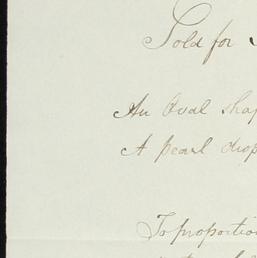 Sold for
An Oval shap
A pearl drop
To proportion